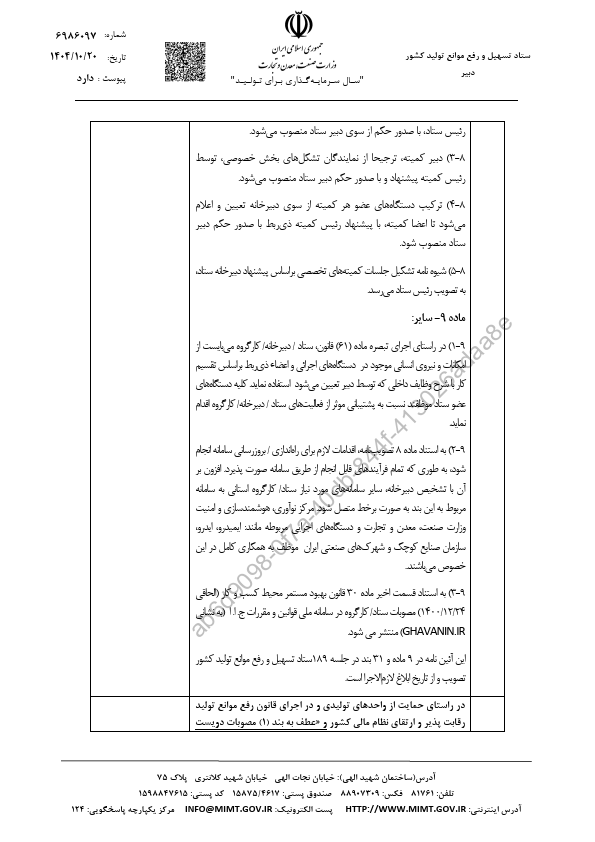 ستاد تسهیل و رفع موانع تولید کشور
دبیر
جمهوری اسلامی ایران
وزارت صنعت، معدن و تجارت
"سال سرمایه‌گذاری برای تولید"
شماره: ۶۹۸۶۰۹۷
تاریخ: ۱۴۰۴/۱۰/۲۰
پیوست : دارد
رئیس ستاد، با صدور حکم از سوی دبیر ستاد منصوب می‌شود.
۳-۸) دبیر کمیته، ترجیحا از نمایندگان تشکل‌های بخش خصوصی، توسط
رئیس کمیته پیشنهاد و با صدور حکم دبیر ستاد منصوب می‌شود.
۴-۸) ترکیب دستگاه‌های عضو هر کمیته از سوی دبیرخانه تعیین و اعلام
می‌شود تا اعضا کمیته، با پیشنهاد رئیس کمیته ذی‌ربط با صدور حکم دبیر
ستاد منصوب شود.
۵-۸) شیوه نامه تشکیل جلسات کمیته‌های تخصصی براساس پیشنهاد دبیرخانه ستاد،
به تصویب رئیس ستاد می‌رسد.
ماده ۹- سایر:
۱-۹) در راستای اجرای تبصره ماده (۶۱) قانون، ستاد / دبیرخانه/ کارگروه می‌بایست از
امکانات و نیروی انسانی موجود در دستگاه‌های اجرائی و اعضاء ذی‌ربط براساس تقسیم
کار با شرح وظایف داخلی که توسط دبیر تعیین می‌شود استفاده نماید. کلیه دستگاه‌های
عضو ستاد موظفند نسبت به پشتیبانی موثر از فعالیت‌های ستاد / دبیرخانه/ کارگروه اقدام
نماید.
۲-۹) به استناد ماده ۸ تصویب‌نامه، اقدامات لازم برای راه‌اندازی / بروزرسانی سامانه انجام
شود، به طوری که تمام فرآیندهای قابل انجام از طریق سامانه صورت پذیرد. افزون بر
آن با تشخیص دبیرخانه، سایر سامانه‌های مورد نیاز ستاد/ کارگروه استانی به سامانه
مربوط به این بند به صورت برخط متصل شود. مرکز نوآوری، هوشمندسازی و امنیت
وزارت صنعت، معدن و تجارت و دستگاه‌های اجرائی مربوطه مانند: ایمیدرو، ایدرو،
سازمان صنایع کوچک و شهرک‌های صنعتی ایران موظف به همکاری کامل در این
خصوص می‌باشند.
۳-۹) به استناد قسمت اخیر ماده ۳۰ قانون بهبود مستمر محیط کسب و کار (الحاقی
۱۴۰۰/۱۲/۲۴) مصوبات ستاد/ کارگروه در سامانه ملی قوانین و مقررات ج.ا.ا (به نشانی
GHAVANIN.IR) منتشر می شود.
این آئین نامه در ۹ ماده و ۳۱ بند در جلسه ۱۸۹ستاد تسهیل و رفع موانع تولید کشور
تصویب و از تاریخ ابلاغ لازم‌الاجرا است.
در راستای حمایت از واحدهای تولیدی و در اجرای قانون رفع موانع تولید
رقابت پذیر و ارتقای نظام مالی کشور و «عطف به بند (۱) مصوبات دویست
آدرس(ساختمان شهید الهی): خیابان نجات الهی خیابان شهید کلانتری پلاک ۷۵
تلفن: ۸۱۷۶۱ فکس: ۸۸۹۰۷۳۰۹ صندوق پستی: ۱۵۸۷۵/۴۶۱۷ کد پستی: ۱۵۹۸۸۴۷۶۱۵
آدرس اینترنتی: HTTP://WWW.MIMT.GOV.IR پست الکترونیک: INFO@MIMT.GOV.IR مرکز یکپارچه پاسخگویی: ۱۲۴